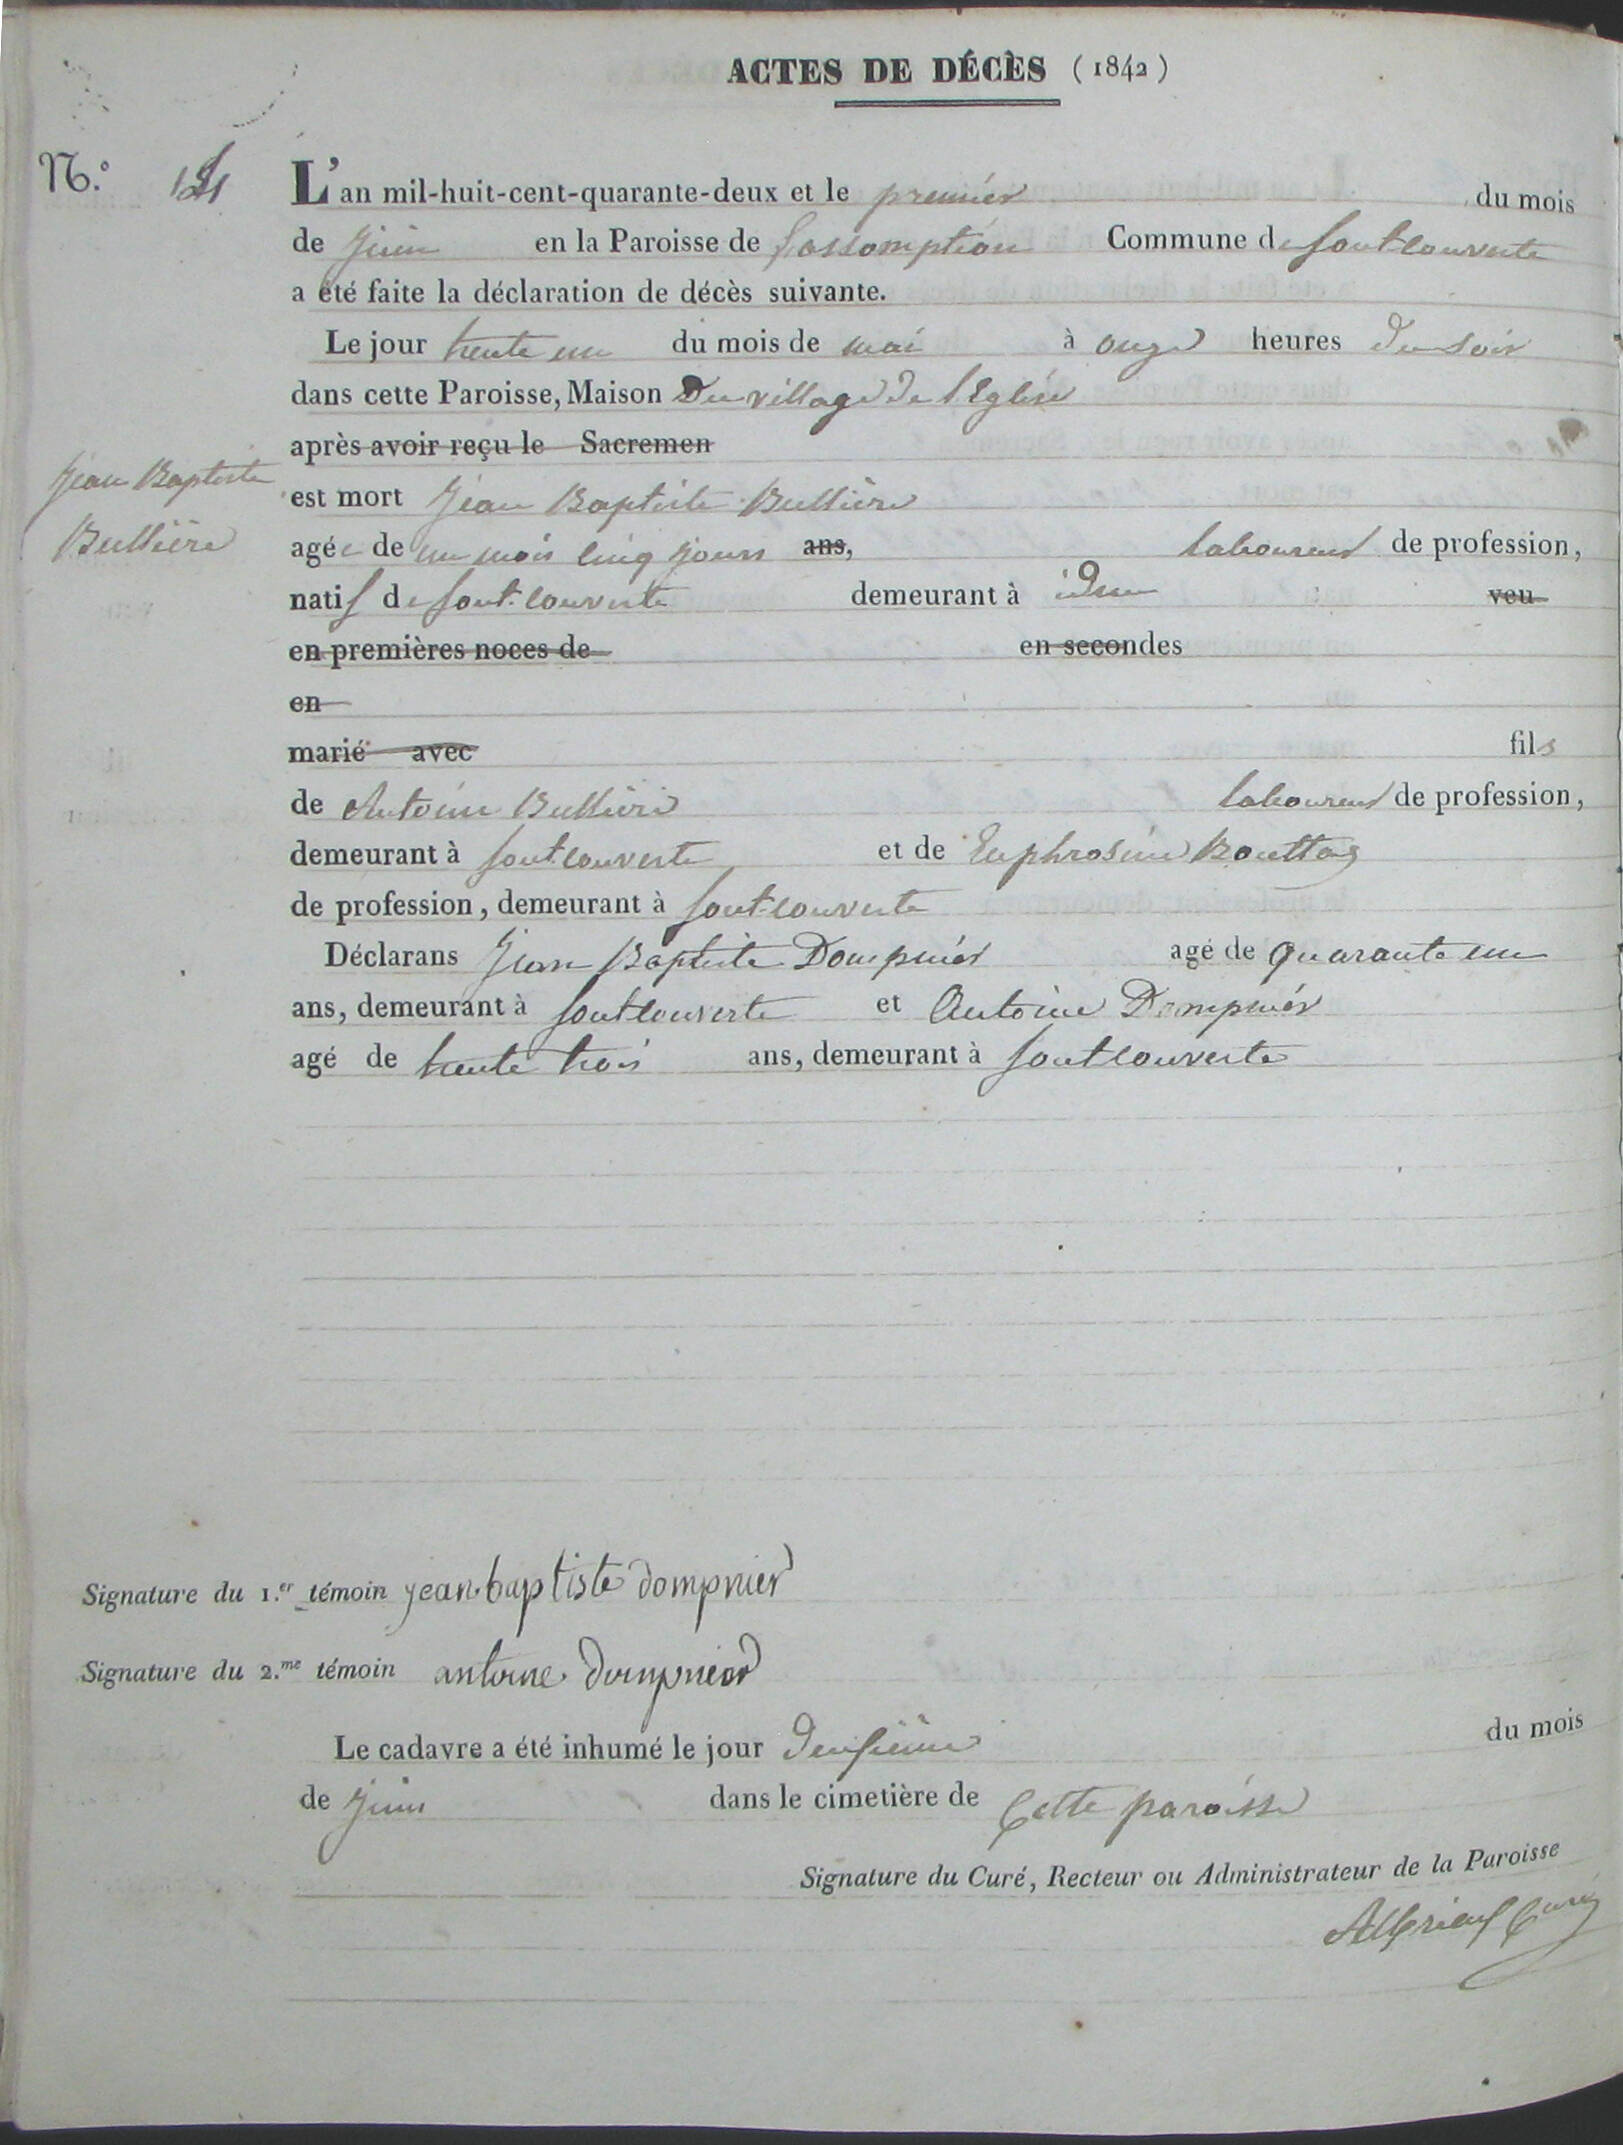 ACTES DE DÉCÈS (1842)
N.°
L'an mil-huit-cent-quarante-deux et le premier du mois
de Juin en la Paroisse de l'assomption Commune de Fontcouverte
a été faite la déclaration de décès suivante.
Le jour trente un du mois de mai à onze heures du soir
dans cette Paroisse, Maison Du village de l'Eglise
après avoir reçu le Sacremen
Jean Baptiste
est mort Jean Baptiste Bullière
Bullière
agé de un mois cinq jours ans, laboureur de profession,
natif de Font-couverte demeurant à idem veu
en premières noces de en secondes
en
marié avec fils
de Antoine Bullière laboureur de profession,
demeurant à Font-couverte et de Euphrosine
de profession, demeurant à Font-couverte
Déclarans Jean Baptiste Dompnier agé de quarante un
ans, demeurant à Fontcouverte et Antoine Dompnier
agé de trente trois ans, demeurant à Fontcouverte
Signature du 1.er témoin jean baptiste dompnier
Signature du 2.me témoin antoine dompnier
Le cadavre a été inhumé le jour deuxième du mois
de Juin dans le cimetière de Cette paroisse
Signature du Curé, Recteur ou Administrateur de la Paroisse
Curé